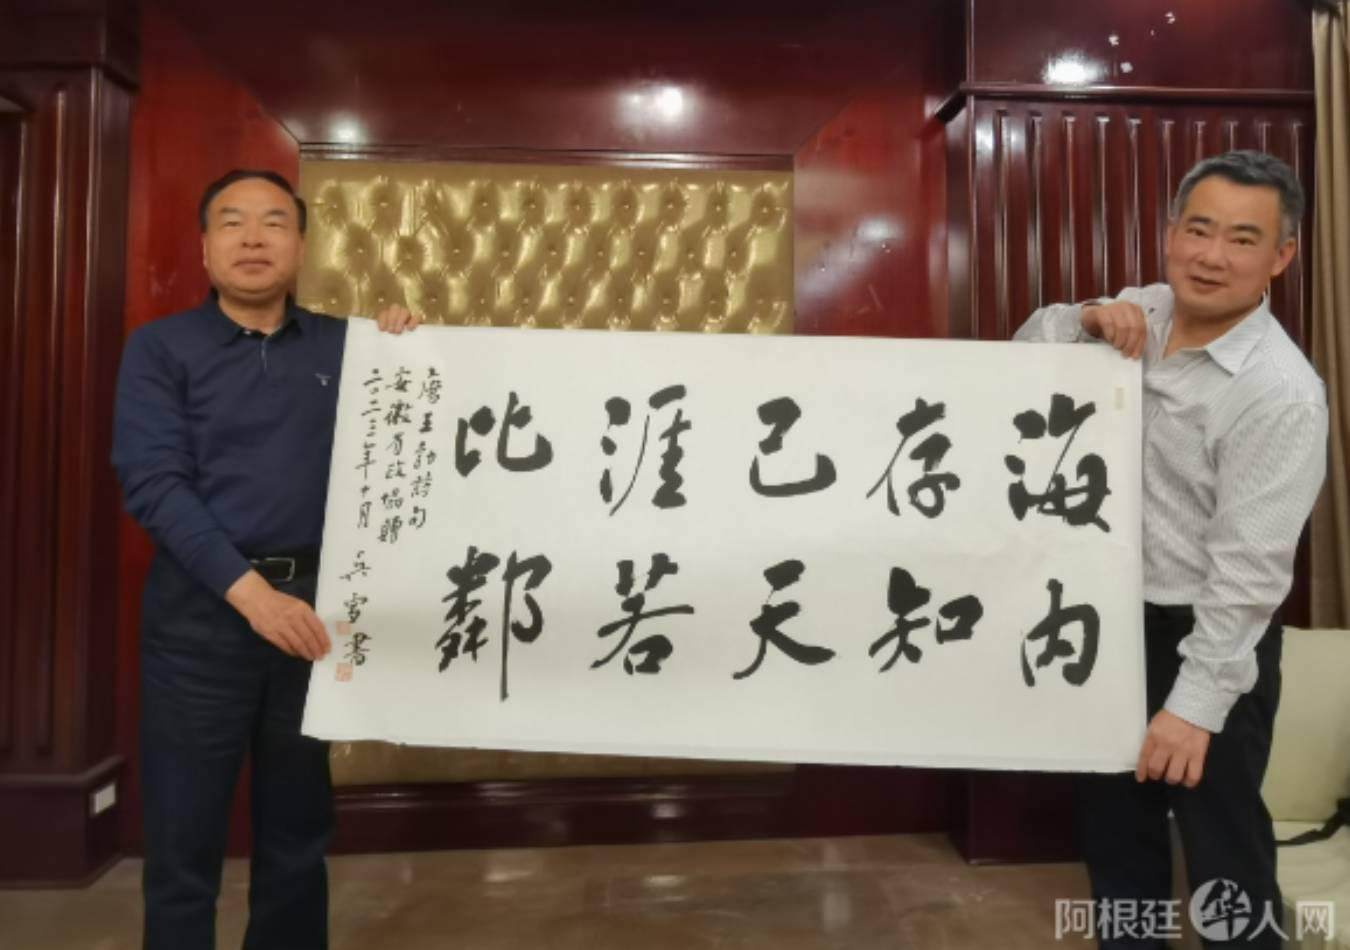 海内
存知
己天
涯若
比鄰
唐王勃詩句
安徽省政協贈
二〇二三年十月 吴雪書
阿根廷华人网